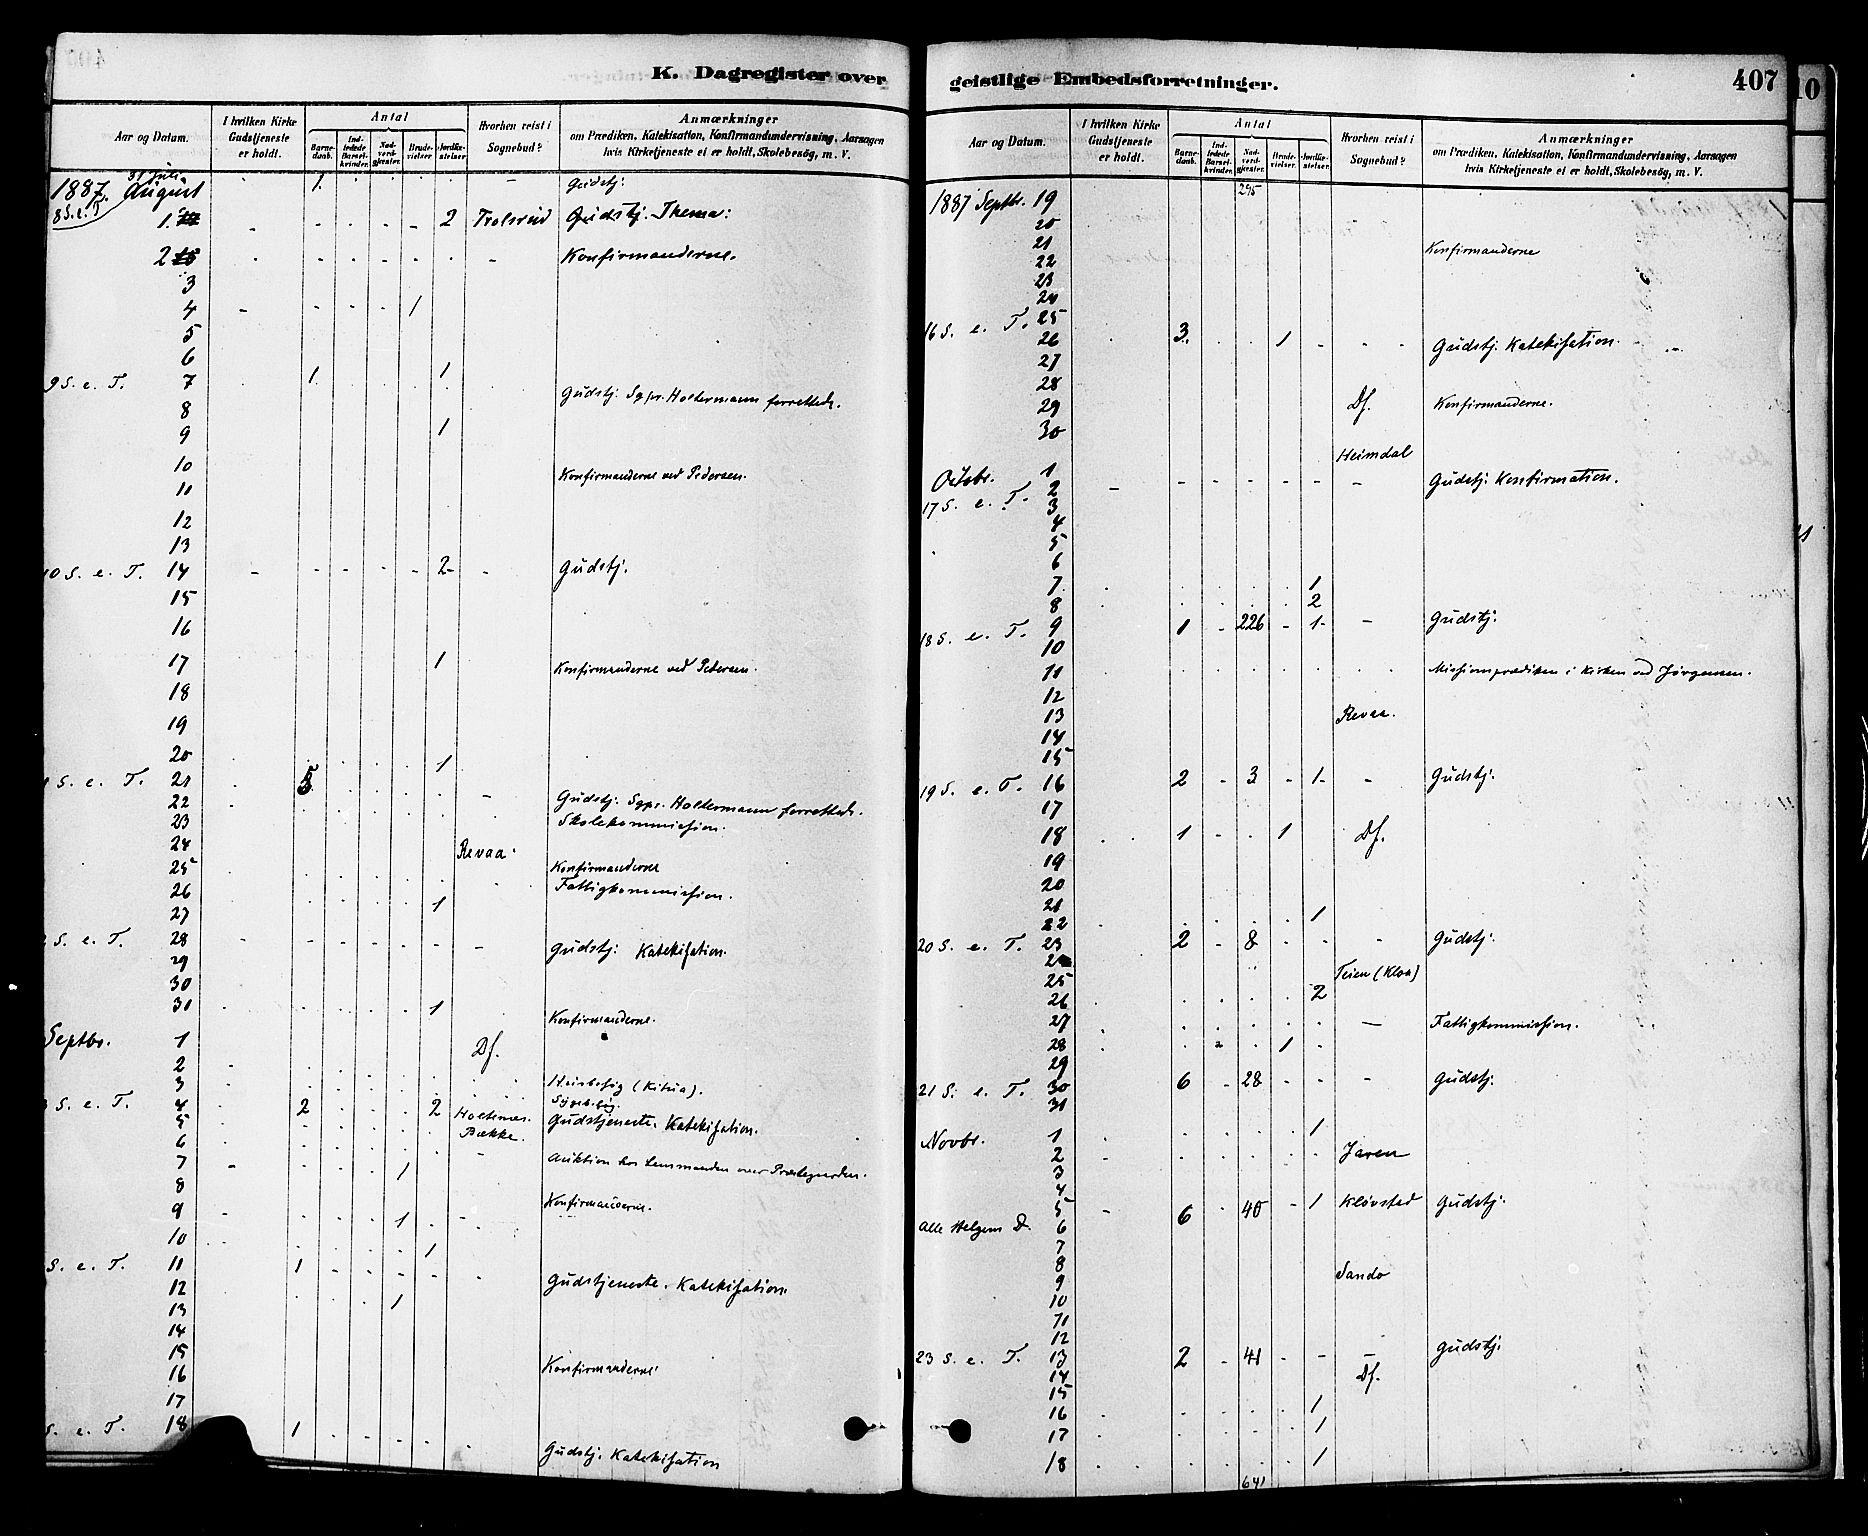 K. Dagregister over
Aar og Datum.
I hvilken Kirke Gudstjeneste er holdt.
Antal
Barnedaab.
Indledede Barselkvinder.
Nadverdgjester.
Brudevielser
Jordfæstelser
Hvorhen reist i Sognebud?
Anmærkninger
om Prædiken, Katekisation, Konfirmandundervisning, Aarsagen
hvis Kirketjeneste ei er holdt, Skolebesög, m. V.
31 Juli 1. Gudstj:
1887. August
8 S. e. T.
1. 2 Trolsrud Gudstj. Thema:
2 Konfirmanderne.
3
4 1
5
6
9 S. e. T. 7 1 1 Gudstj. Sgpr. Holtermann forrettede.
8
9 1
10 Konfirmanderne ved Pedersen.
11
12
13
10 S. e. T. 14 2 Gudstj.
15
16
17 1 Konfirmanderne ved Pedersen.
18
19
20 1
S. e. T. 21 5 Gudstj. Sgpr. Holtermann forrettede.
22 Skolekommission.
23
24 Revaa.
25 Konfirmanderne
26 Fattigkommission.
27 1
S. e. T. 28 Gudstj. Katekisation.
29
30
31 1 Konfirmanderne.
Septbr. 1 Df.
2
3 Husbesøg
S. e. T. 4 2 2 Gudstjeneste. Katekisation.
5 Bække.
6
7 1 Auktion hos Lensmanden over Præstegaarden.
8
9 1 Konfirmanderne.
10 1
S. e. T. 11 1 Gudstjeneste. Katekisation
12
13 1
14
15
16 Konfirmanderne
17
S. e. T. 18 1 Gudstj. Katekisation
geistlige Embedsforretninger.
407
Aar og Datum.
I hvilken Kirke Gudstjeneste er holdt.
Antal
Barnedaab.
Indledede Barselkvinder.
Nadverdgjester.
Brudevielser.
Jordfæstelser.
Hvorhen reist i Sognebud?
Anmærkninger
om Prædiken, Katekisation, Konfirmandundervisning, Aarsagen
hvis Kirketjeneste ei er holdt, Skolebesög, m. V
295
1887 Septbr. 19
20
21 Konfirmanderne
22
23
24
16 S. e. T. 25 3 1 Gudstj. Katekisation.
26
27
28 Df. Konfirmanderne.
29
30 Heimdal
Octobr. 1
17 S. e. T. 2 Gudstj. Konfirmation.
3
4
5
6
7 1
8 2
18 S. e. T. 9 1 226 1 Gudstj.
10
11 Missionsprædiken i Kirken ved Jørgensen.
12
13 Revaa.
14
15
19 S. e. T. 16 2 3 1 Gudstj.
17
18 1 1 Df.
19
20
21
22 1
20 S. e. T. 23 2 8 Gudstj.
24 Teien (Kloa)
25
26 2
27 Fattigkommission.
28 1
29
21 S. e. T. 30 6 28 Gudstj.
31
Novbr. 1 1
2 Jaren
3
4
5
Alle Helgens D. 6 6 40 1 Kløvstad Gudstj.
7
8
9 Sando
10
11
12
23 S. e. T. 13 2 41 Gudstj.
14 Df.
15
16 1
17 1
18 1
641